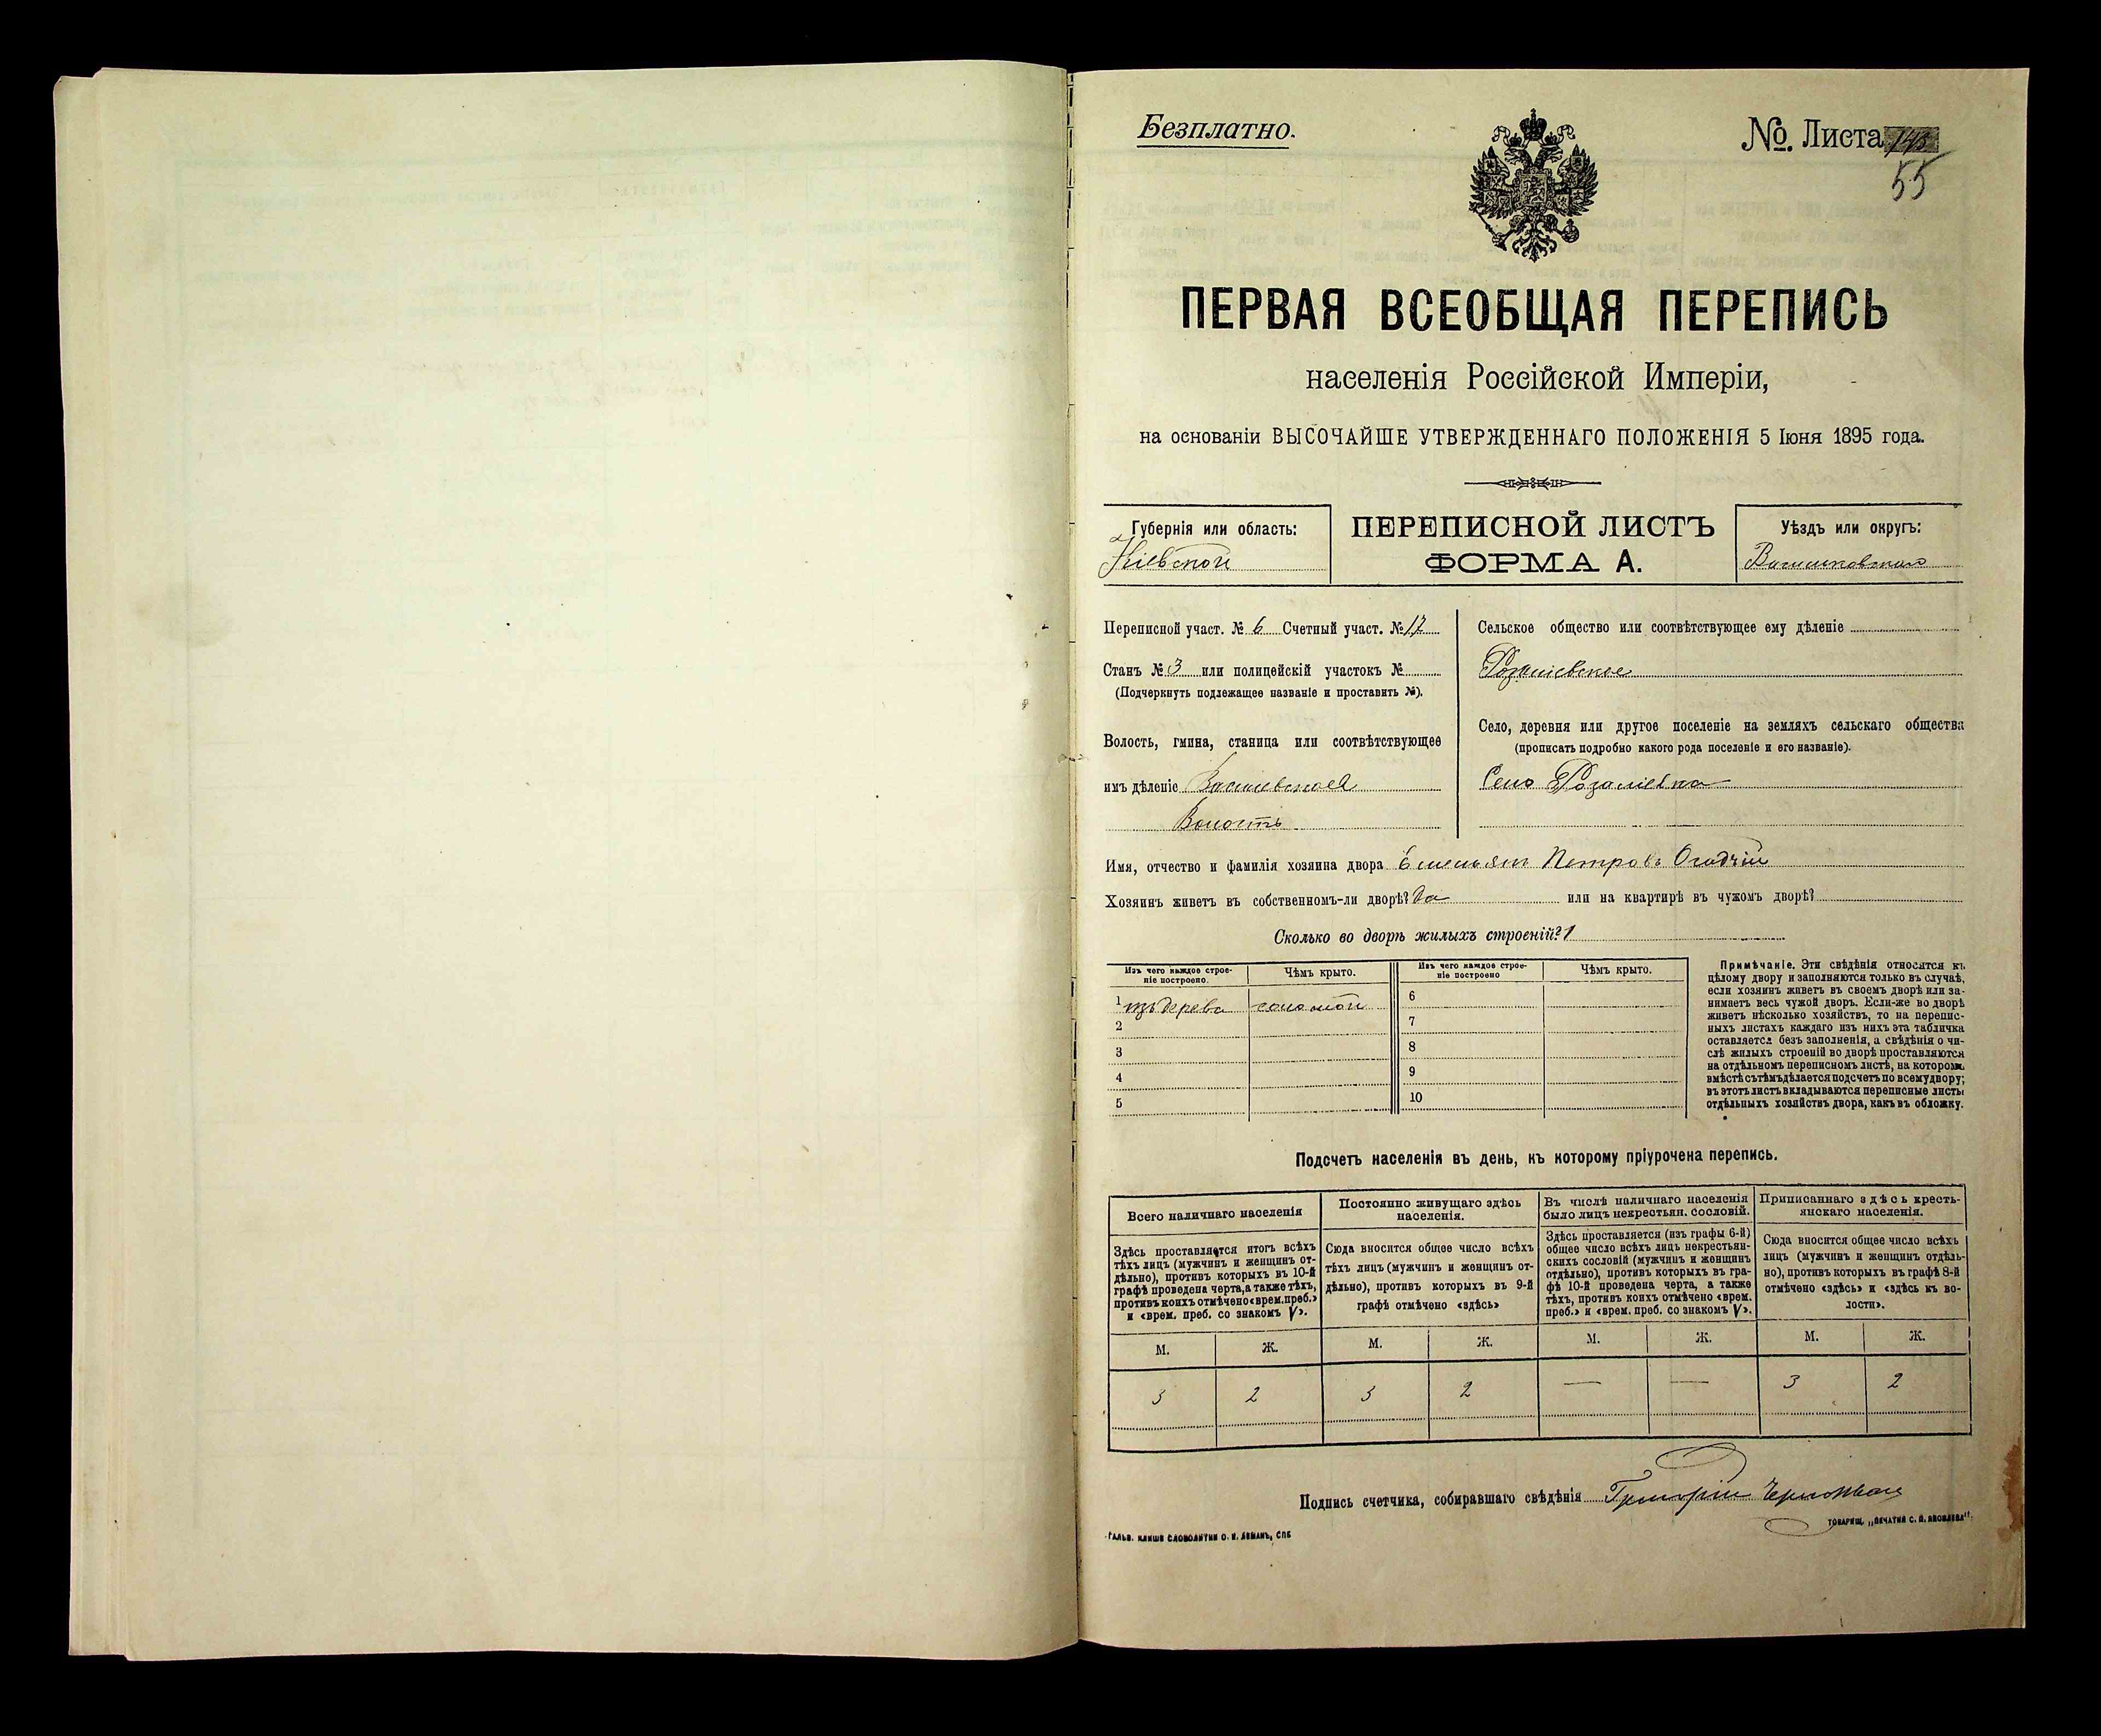 Безплатно.
№. Листа
55
ПЕРВАЯ ВСЕОБЩАЯ ПЕРЕПИСЬ
населенія Россійской Имперіи,
на основаніи ВЫСОЧАЙШЕ УТВЕРЖДЕННАГО ПОЛОЖЕНІЯ 5 Іюня 1895 года.
Губернія или область:
Кіевской
ПЕРЕПИСНОЙ ЛИСТЪ
ФОРМА А.
Уѣздъ или округъ:
Переписной участ. № 6 Счетный участ. № 12
Станъ № 3 или полицейскій участокъ №
(Подчеркнуть подлежащее названіе и проставить №).
Волость, гмина, станица или соотвѣтствующее
имъ дѣленіе
Волость
Сельское общество или соотвѣтствующее ему дѣленіе
Розаліевское
Село, деревня или другое поселеніе на земляхъ сельскаго общества
(прописать подробно какого рода поселеніе и его названіе).
Село Розаліевка
Имя, отчество и фамилія хозяина двора Емельянъ Петровъ
Хозяинъ живетъ въ собственномъ-ли дворѣ? да или на квартирѣ въ чужомъ дворѣ?
Сколько во дворѣ жилыхъ строеній? 1
Изъ чего каждое строе-
ніе построено.
Чѣмъ крыто.
Изъ чего каждое строе-
ніе построено
Чѣмъ крыто.
1 изъ дерева соломой 6
2 7
3 8
4 9
5 10
Примѣчаніе. Эти свѣдѣнія относятся къ
цѣлому двору и заполняются только въ случаѣ,
если хозяинъ живетъ въ своемъ дворѣ или за-
нимаетъ весь чужой дворъ. Если-же во дворѣ
живетъ нѣсколько хозяйствъ, то на перепис-
ныхъ листахъ каждаго изъ нихъ эта табличка
оставляется безъ заполненія, а свѣдѣнія о чи-
слѣ жилыхъ строеній во дворѣ проставляются
на отдѣльномъ переписномъ листѣ, на которомъ
вмѣстѣ съ тѣмъ дѣлается подсчетъ по всему двору;
въ этотъ листъ вкладываются переписные листы
отдѣльныхъ хозяйствъ двора, какъ въ обложку.
Подсчетъ населенія въ день, къ которому пріурочена перепись.
Всего наличнаго населенія
Постоянно живущаго здѣсь
населенія.
Въ числѣ наличнаго населенія
было лицъ некрестьян. сословій.
Приписаннаго здѣсь кресть-
янскаго населенія.
Здѣсь проставляется итогъ всѣхъ
тѣхъ лицъ (мужчинъ и женщинъ от-
дѣльно), противъ которыхъ въ 10-й
графѣ проведена черта, а также тѣхъ,
противъ коихъ отмѣчено «врем. преб.»
и «врем. преб. со знакомъ V».
Сюда вносится общее число всѣхъ
тѣхъ лицъ (мужчинъ и женщинъ от-
дѣльно), противъ которыхъ въ 9-й
графѣ отмѣчено «здѣсь»
Здѣсь проставляется (изъ графы 6-й)
общее число всѣхъ лицъ некрестьян-
скихъ сословій (мужчинъ и женщинъ
отдѣльно), противъ которыхъ въ гра-
фѣ 10-й проведена черта, а также
тѣхъ, противъ коихъ отмѣчено «врем.
преб.» и «врем. преб. со знакомъ V».
Сюда вносится общее число всѣхъ
лицъ (мужчинъ и женщинъ отдѣль-
но), противъ которыхъ въ графѣ 8-й
отмѣчено «здѣсь» и «здѣсь къ во-
лости».
М. Ж. М. Ж. М. Ж. М. Ж.
3 2 3 2 — — 3 2
Подпись счетчика, собиравшаго свѣдѣнія Григорій
ГАЛЬВ. КЛИШЕ СЛОВОЛИТНИ О. И. ЛЕМАНЪ, СПБ
ТОВАРИЩ. „ПЕЧАТНЯ С. П. ЯКОВЛЕВА“.